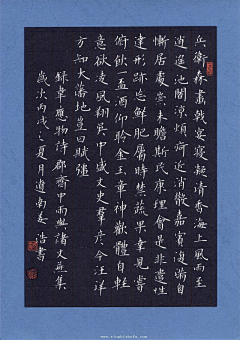 兵衛森畫戟宴寢凝清香海上風雨至
逍遙池閣涼煩疴近消散嘉賓復滿自
慚居處崇未瞻斯民康理會是非遣性
達形跡忘鮮肥屬時禁蔬果幸見嘗
俯飲一盃酒仰聆金玉章神歡體自輕
意欲凌風翔吳中盛文史群彥今汪洋
方知大藩地豈曰賦彊
錄韋應物詩郡齋中雨與諸文士燕集
歲次丙戌之夏月道南 浩書